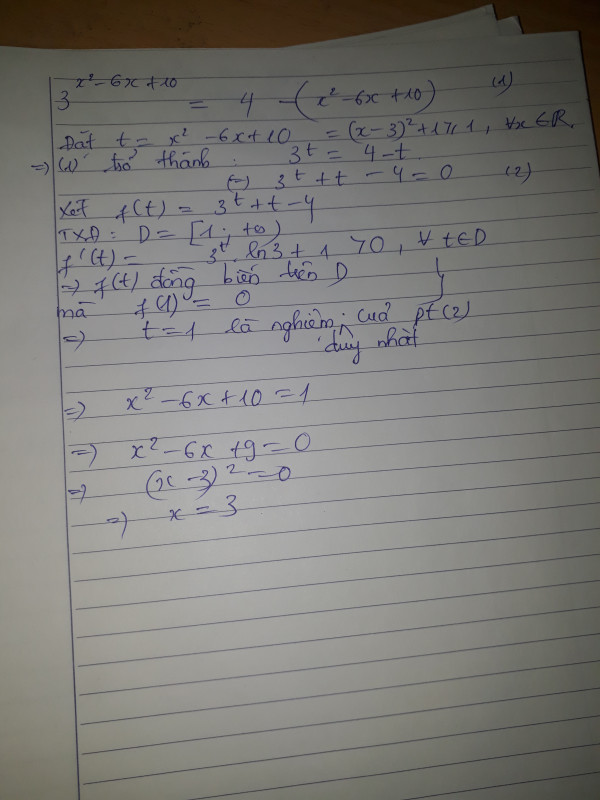 3^{x²-6x+10} = 4 - (x²-6x+10) (1)
Đặt t = x² - 6x + 10 = (x-3)² + 1 ≥ 1, ∀x ∈ R.
=> (1) trở thành: 3^t = 4 - t.
(=) 3^t + t - 4 = 0 (2)
Xét f(t) = 3^t + t - 4
TXĐ: D = [1; +∞)
f'(t) = 3^t . ln3 + 1 > 0, ∀ t ∈ D
=> f(t) đồng biến trên D
mà f(1) = 0
=> t = 1 là nghiệm duy nhất của pt (2)
=> x² - 6x + 10 = 1
=> x² - 6x + 9 = 0
=> (x - 3)² = 0
=> x = 3